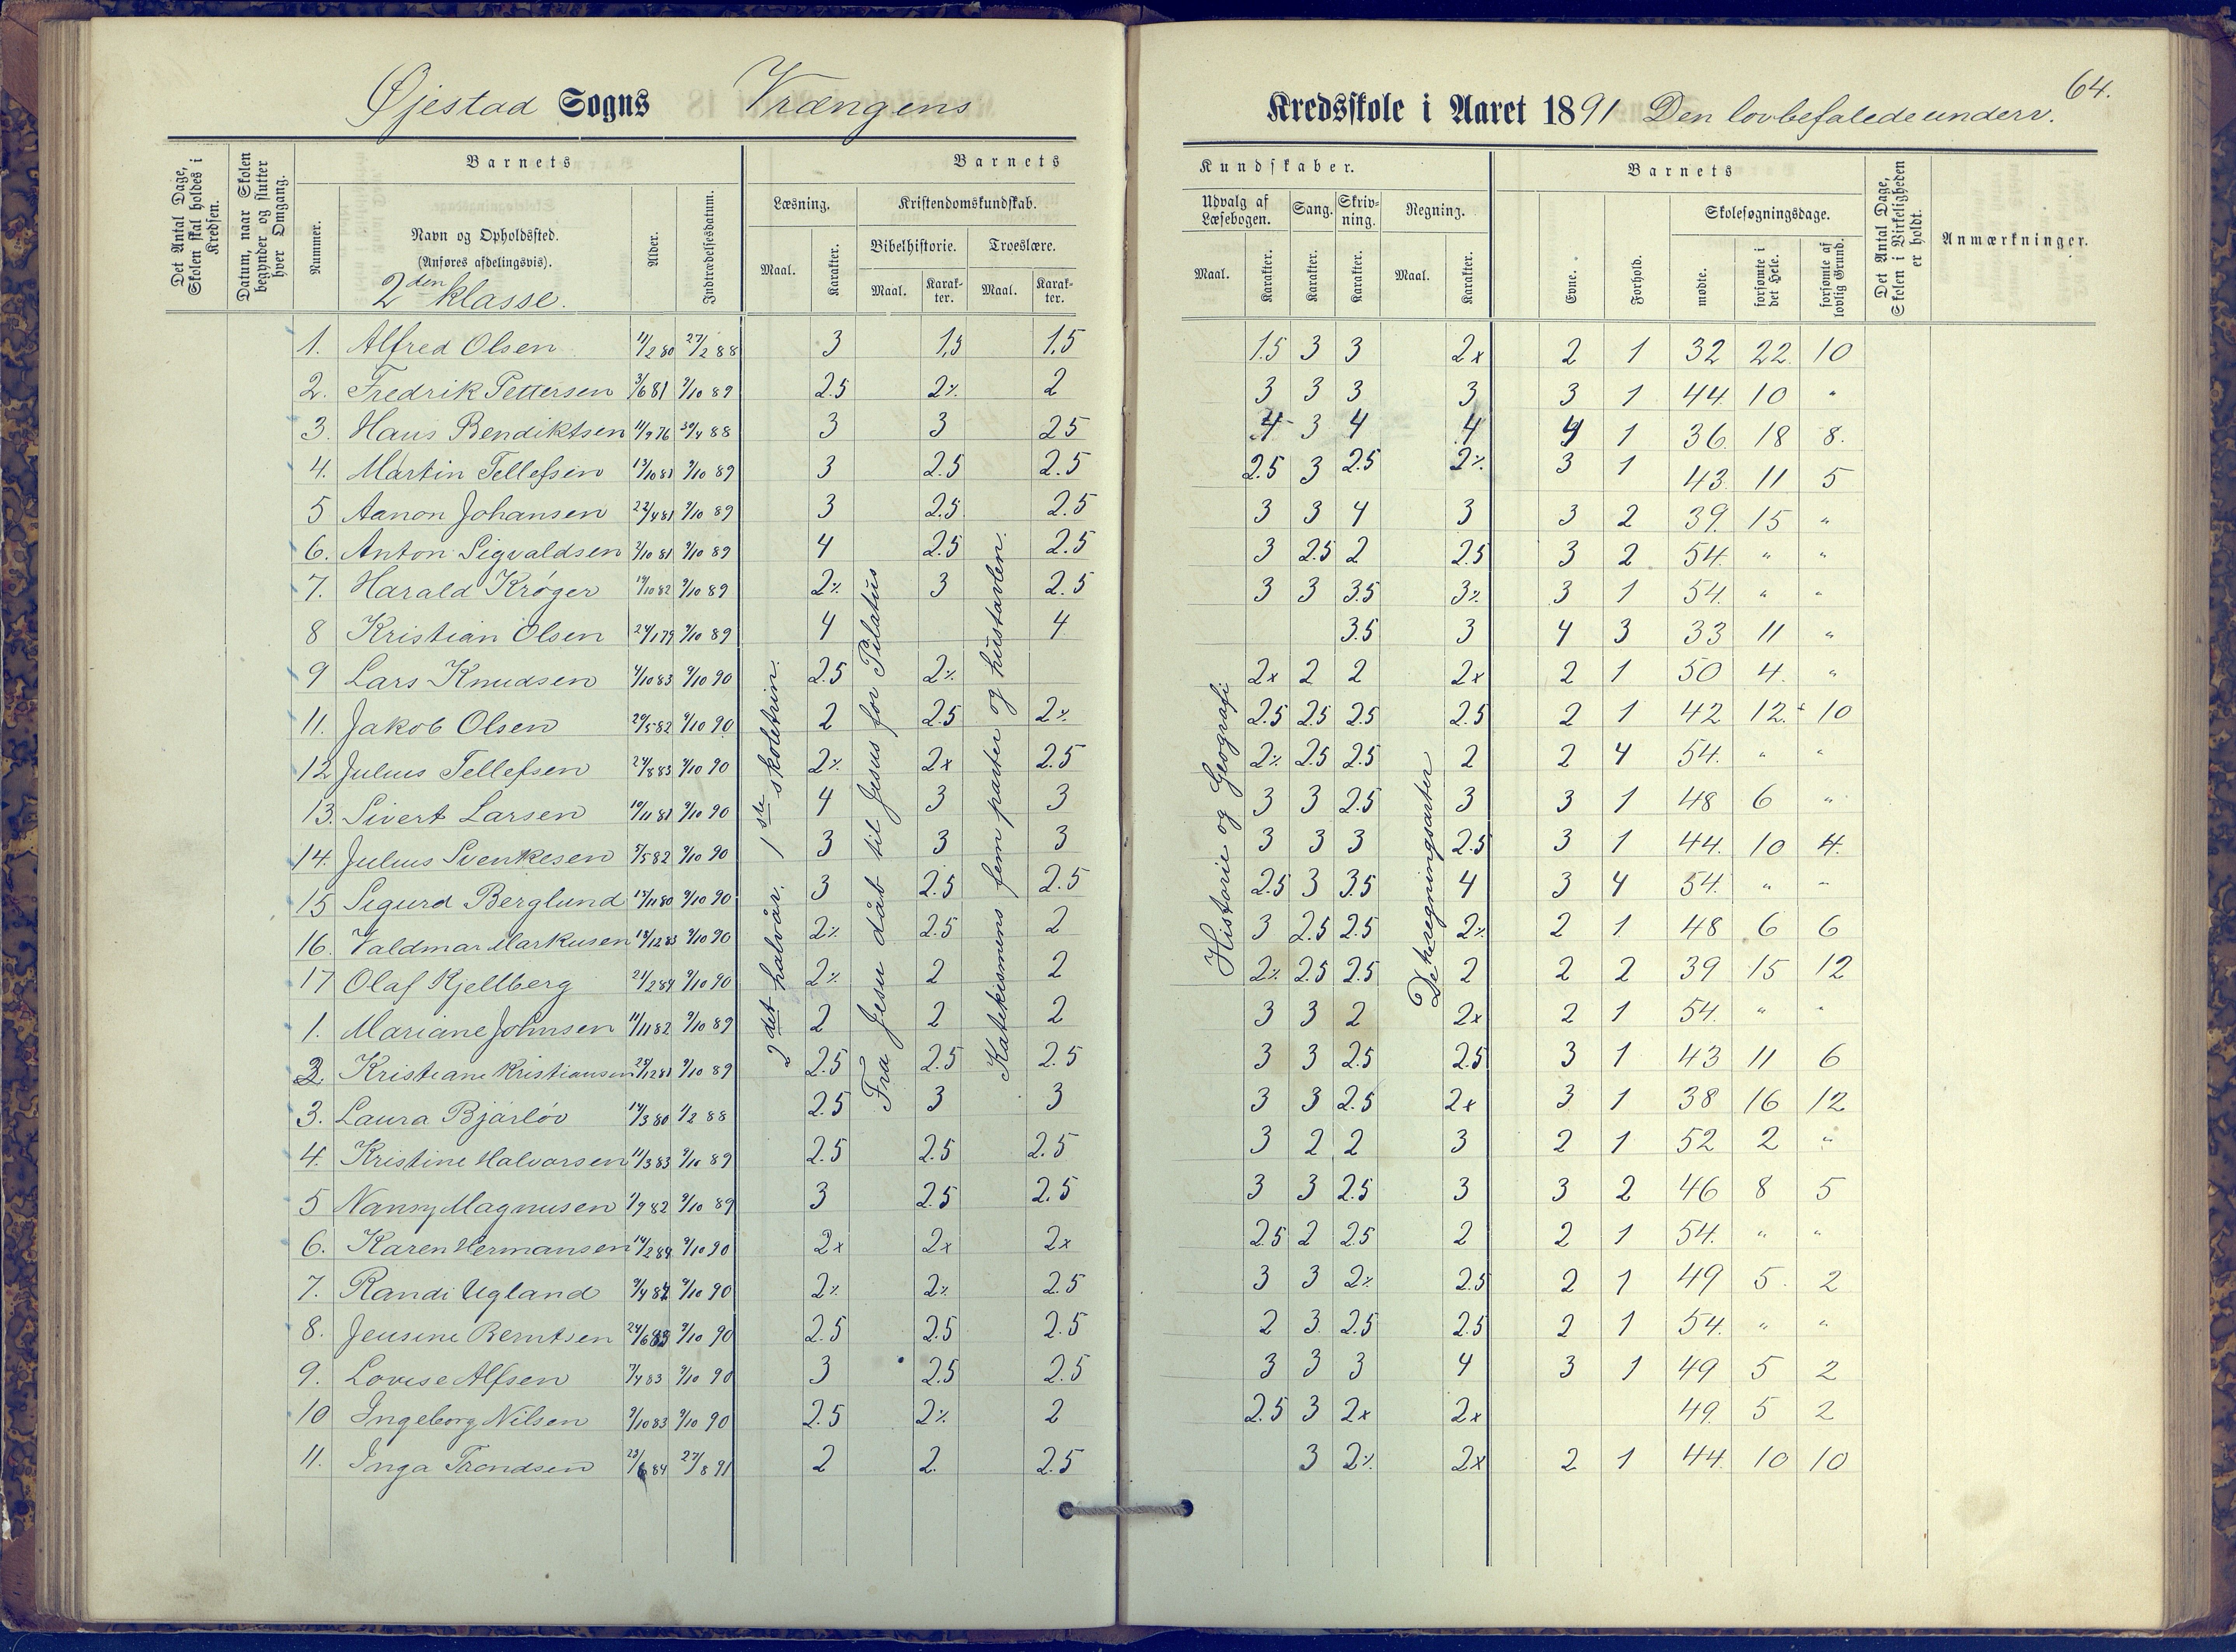 64.
Øjestad Sogns Vrængens Kredsskole i Aaret 1891 Den lovbefalede underv.
Det Antal Dage, Skolen skal holdes i Kredsen.
Datum, naar Skolen begynder og slutter hver Omgang.
Barnets
Nummer.
Navn og Opholdssted.
(Anføres afdelingsvis).
2den klasse.
Alder.
Indtrædelsesdatum.
Barnets
Læsning.
Maal.
Karakter.
Kristendomskundskab.
Bibelhistorie.
Maal.
Karakter.
Troeslære.
Maal.
Karakter.
Kundskaber.
Udvalg af Læsebogen.
Maal.
Karakter.
Sang.
Karakter.
Skrivning.
Karakter.
Regning.
Maal.
Karakter.
Barnets
Evne.
Forhold.
Skolesøgningsdage.
mødte.
forsømte i det Hele.
forsømte af lovlig Grund.
Det Antal Dage, Skolen i Virkeligheden er holdt.
Anmærkninger.
2det halvår. 1ste skoletrin.
Fra Jesu dåb til Jesus for Pilatus
Katekismens fem parter og hustavlen.
Historie og Geografi
De 4 regningsarter
1. Alfred Olsen 11/2 80 27/2 88 3 1,5 1,5 1.5 3 3 2x 2 1 32 22. 10
2. Fredrik Pettersen 3/6 81 9/10 89 2.5 2% 2 3 3 3 3 3 1 44. 10 "
3. Hans Bendiktsen 11/9 76 30/4 88 3 3 2.5 4 3 4 4 4 1 36. 18 8.
4. Martin Tellefsen 13/10 81 9/10 89 3 2.5 2.5 2.5 3 2.5 2% 3 1 43. 11 5
5 Aanon Johansen 22/4 81 9/10 89 3 2.5 2.5 3 3 4 3 3 2 39. 15 "
6. Anton Sigvaldsen 2/10 81 9/10 89 4 2.5 2.5 3 2.5 2 2.5 3 2 54. " "
7. Harald Krøger 19/10 82 9/10 89 2% 3 2.5 3 3 3.5 3% 3 1 54. " "
8 Kristian Olsen 24/1 79 9/10 89 4 4 3.5 3 4 3 33 11 "
9 Lars Knudsen 4/10 83 9/10 90 2.5 2% 2x 2 2 2x 2 1 50 4. "
11. Jakob Olsen 20/5 82 9/10 90 2 2.5 2% 2.5 2.5 2.5 2.5 2 1 42 12. 10
12 Julius Tellefsen 24/8 83 9/10 90 2% 2x 2.5 2% 2.5 2.5 2 2 4 54. " "
13. Sivert Larsen 10/11 81 9/10 90 4 3 3 3 3 2.5 3 3 1 48 6 "
14. Julius Svenkesen 5/5 82 9/10 90 3 3 3 3 3 3 2.5 3 1 44. 10 4.
15 Sigurd Berglund 15/11 80 9/10 90 3 2.5 2.5 2.5 3 3.5 4 3 4 54. " "
16. Valdmar Markusen 18/12 83 9/10 90 2% 2.5 2 3 2.5 2.5 2% 2 1 48 6 6
17 Olaf Kjellberg 21/2 84 9/10 90 2% 2 2 2% 2.5 2.5 2 2 2 39 15 12
1. Mariane Johnsen 11/11 82 9/10 89 2 2 2 3 3 2 2x 2 1 54. " "
2. Kristiane Kristiansen 25/12 81 9/10 89 2.5 2.5 2.5 3 3 2.5 2.5 3 1 43 11 6
3. Laura Bjárløv 14/3 80 1/2 88 2.5 3 3 3 3 2.5 2x 3 1 38 16 12
4. Kristine Halvorsen 11/3 83 9/10 89 2.5 2.5 2.5 3 2 2 3 2 1 52 2 "
5 Nansy Magnusen 1/9 82 9/10 89 3 2.5 2.5 3 3 2.5 3 3 2 46 8 5
6. Karen Hermansen 14/2 84 9/10 90 2x 2x 2x 2.5 2 2.5 2 2 1 54. " "
7. Randi Ugland 9/4 82 9/10 90 2% 2% 2.5 3 3 2% 2.5 2 1 49 5. 2
8. Jensine Berntsen 24/6 83 9/10 90 2.5 2.5 2.5 2 3. 2.5 2.5 2 1 54. " "
9. Lovise Alfsen 7/4 83 9/10 90 3 2.5 2.5 3 3 3 4 3 1 49 5 2
10 Ingeborg Nilsen 9/10 83 9/10 90 2.5 2% 2 2.5 3 2x 2x 49. 5 2
11. Inga Trondsen 23/6 84 27/8 91 2 2. 2.5 3 2% 2x 2 1 44. 10 10